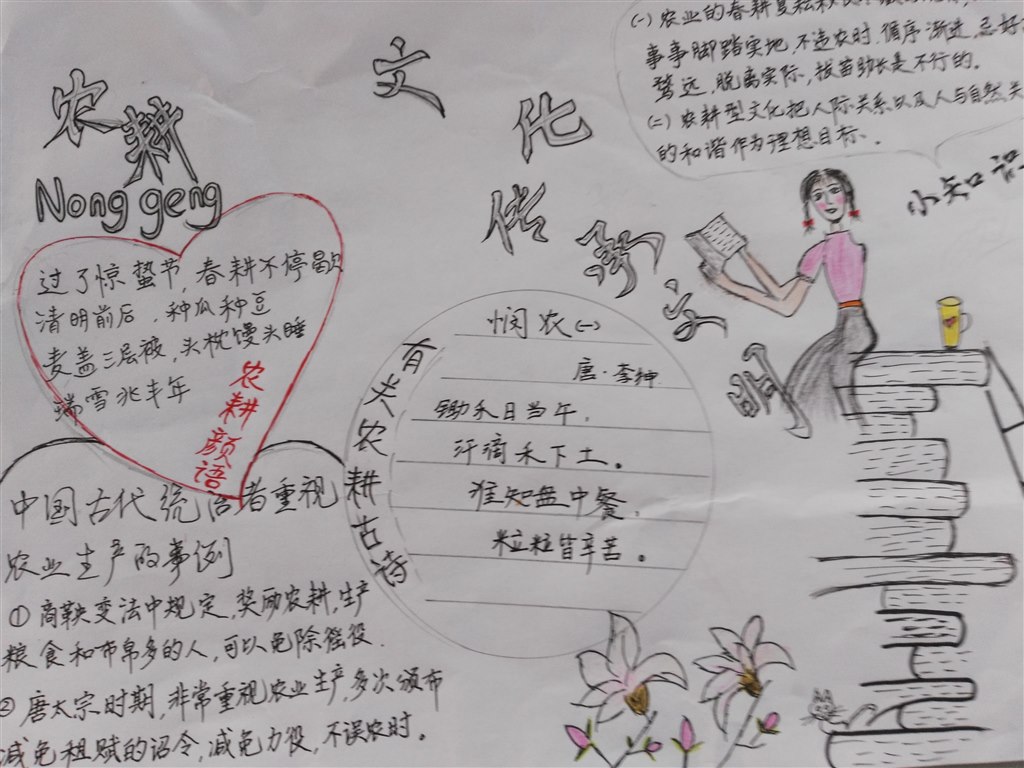 农耕
文化
传承文明
Nong geng
过了惊蛰节，春耕不停歇
清明前后，种瓜种豆
麦盖三层被，头枕馒头睡
瑞雪兆丰年
农耕颜语
中国古代统治者重视
农业生产的事例
①商鞅变法中规定，奖励农耕，生产
粮食和布帛多的人，可以免除徭役．
②唐太宗时期，非常重视农业生产，多次颁布
减免租赋的诏令，减免力役，不误农时。
有关农耕古诗
悯农(一)
唐·李绅
锄禾日当午，
汗滴禾下土。
谁知盘中餐，
粒粒皆辛苦。
(一)农业的春耕夏耘秋
事事脚踏实地，不违农时．循序渐进，忌好
骛远，脱离实际，拔苗助长是不行的．
(二)农耕型文化把人际关系以及人与自然关
的和谐作为理想目标．。
小知识